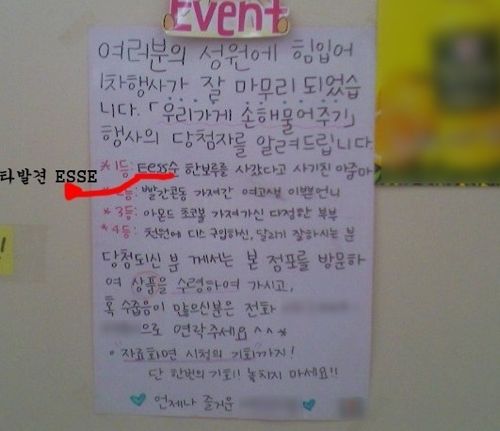 Event
여러분의 성원에 힘입어
1차행사가 잘 마무리 되었습
니다. 「우리가게 손해물어주기」
행사의 당첨자를 알려드립니다
*1등: EESS수 한보루를 사갔다고 사기친 아줌마
타발견 ESSE
등: 빨간콘동 가져간 여고생 이쁜언니
*3등: 아몬드 초코볼 가져가신 다정한 부부
*4등: 천원에 디스 구입하신, 달리기 잘하시는 분
당첨되신 분 께서는 본 점포를 방문하
여 상품을 수령하여 가시고,
혹 수줍음이 많으신분은 전화
으로 연락주세요^^*
자료화면 시청의 기회까지!
단 한번의 기회!! 놓치지 마세요!!
언제나 즐거운